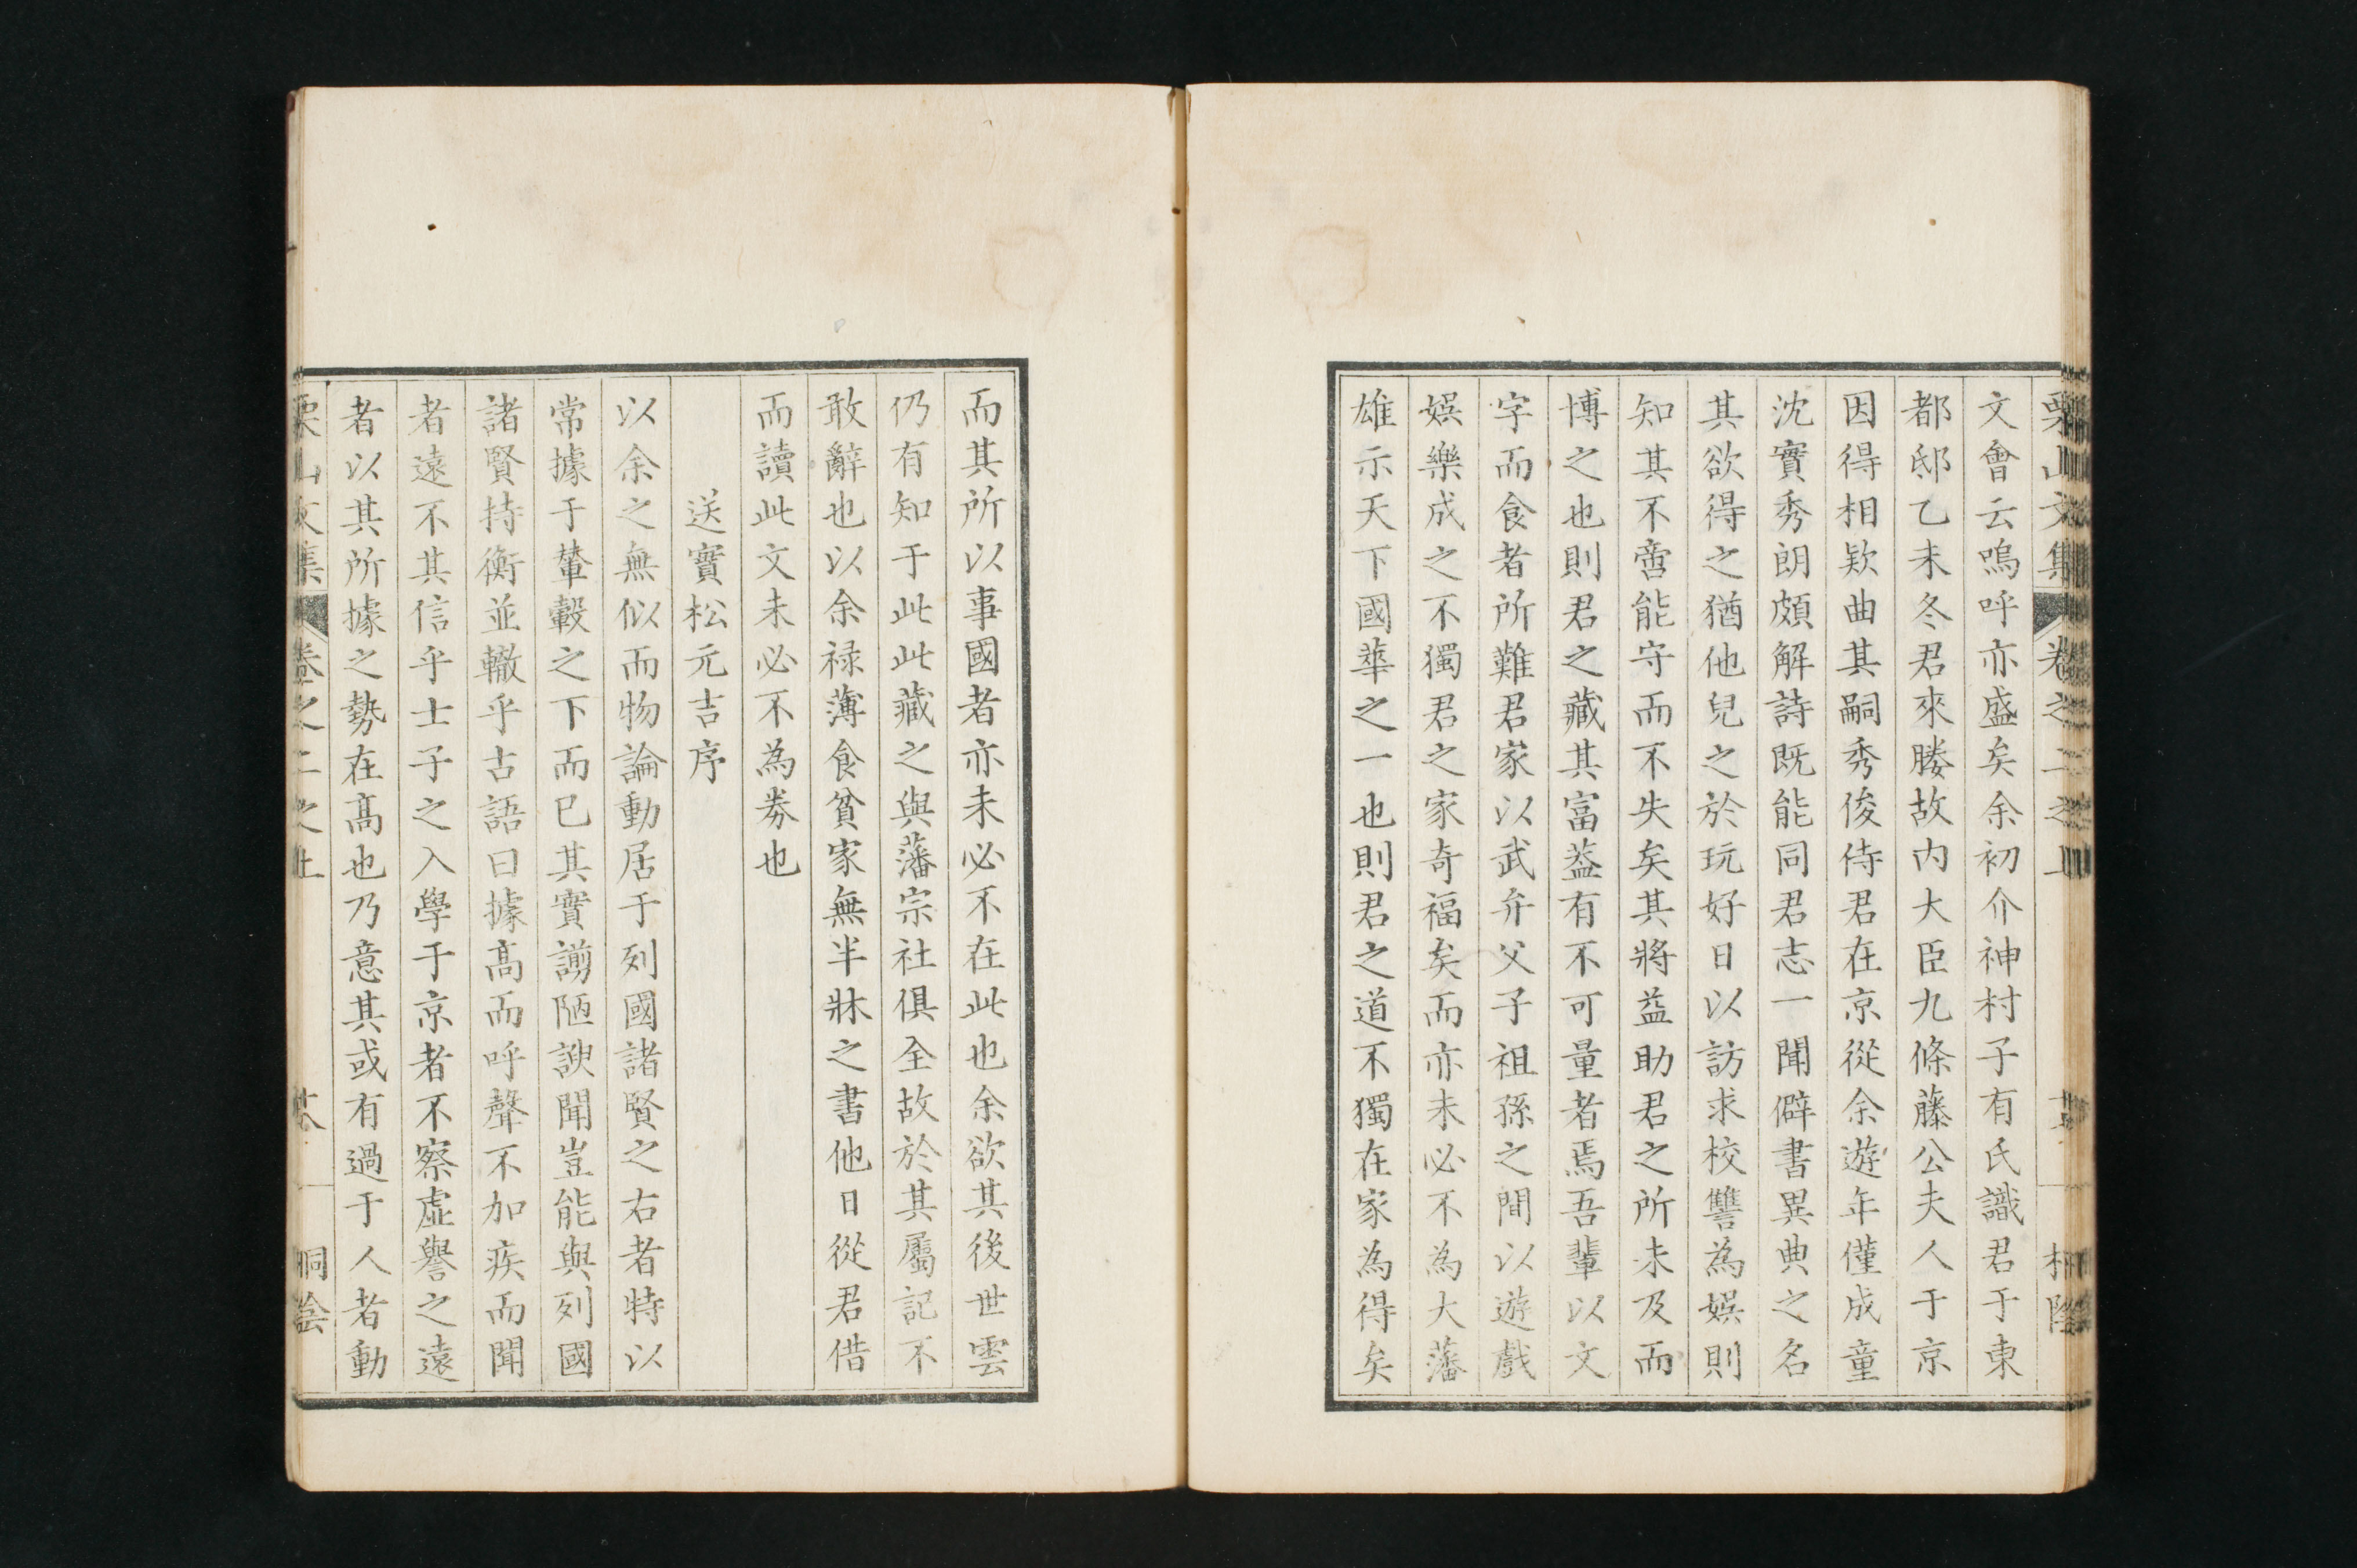 栗山文集 卷之二之上
文會云嗚呼亦盛矣余初介神村子有氏識君于東
都邸乙未冬君來媵故內大臣九條藤公夫人于京
因得相欵曲其嗣秀俊侍君在京從余遊年僅成童
沈實秀朗頗解詩既能同君志一聞僻書異典之名
其欲得之猶他兒之於玩好日以訪求校讐為娛則
知其不啻能守而不失矣其將益助君之所未及而
博之也則君之藏其富葢有不可量者焉吾輩以文
字而食者所難君家以武弁父子祖孫之間以遊戲
娛樂成之不獨君之家奇福矣而亦未必不為大藩
雄示天下國華之一也則君之道不獨在家為得矣
而其所以事國者亦未必不在此也余欲其後世雲
仍有知于此此藏之與藩宗社俱全故於其屬記不
敢辭也以余祿薄食貧家無半牀之書他日從君借
而讀此文未必不為劵也
送寶松元吉序
以余之無似而物論動居于列國諸賢之右者特以
常據于輦轂之下而已其實謭陋諛聞豈能與列國
諸賢持衡並轍乎古語曰據高而呼聲不加疾而聞
者遠不其信乎士子之入學于京者不察虛譽之遠
者以其所據之勢在高也乃意其或有過于人者動
栗山文集 卷之二之上